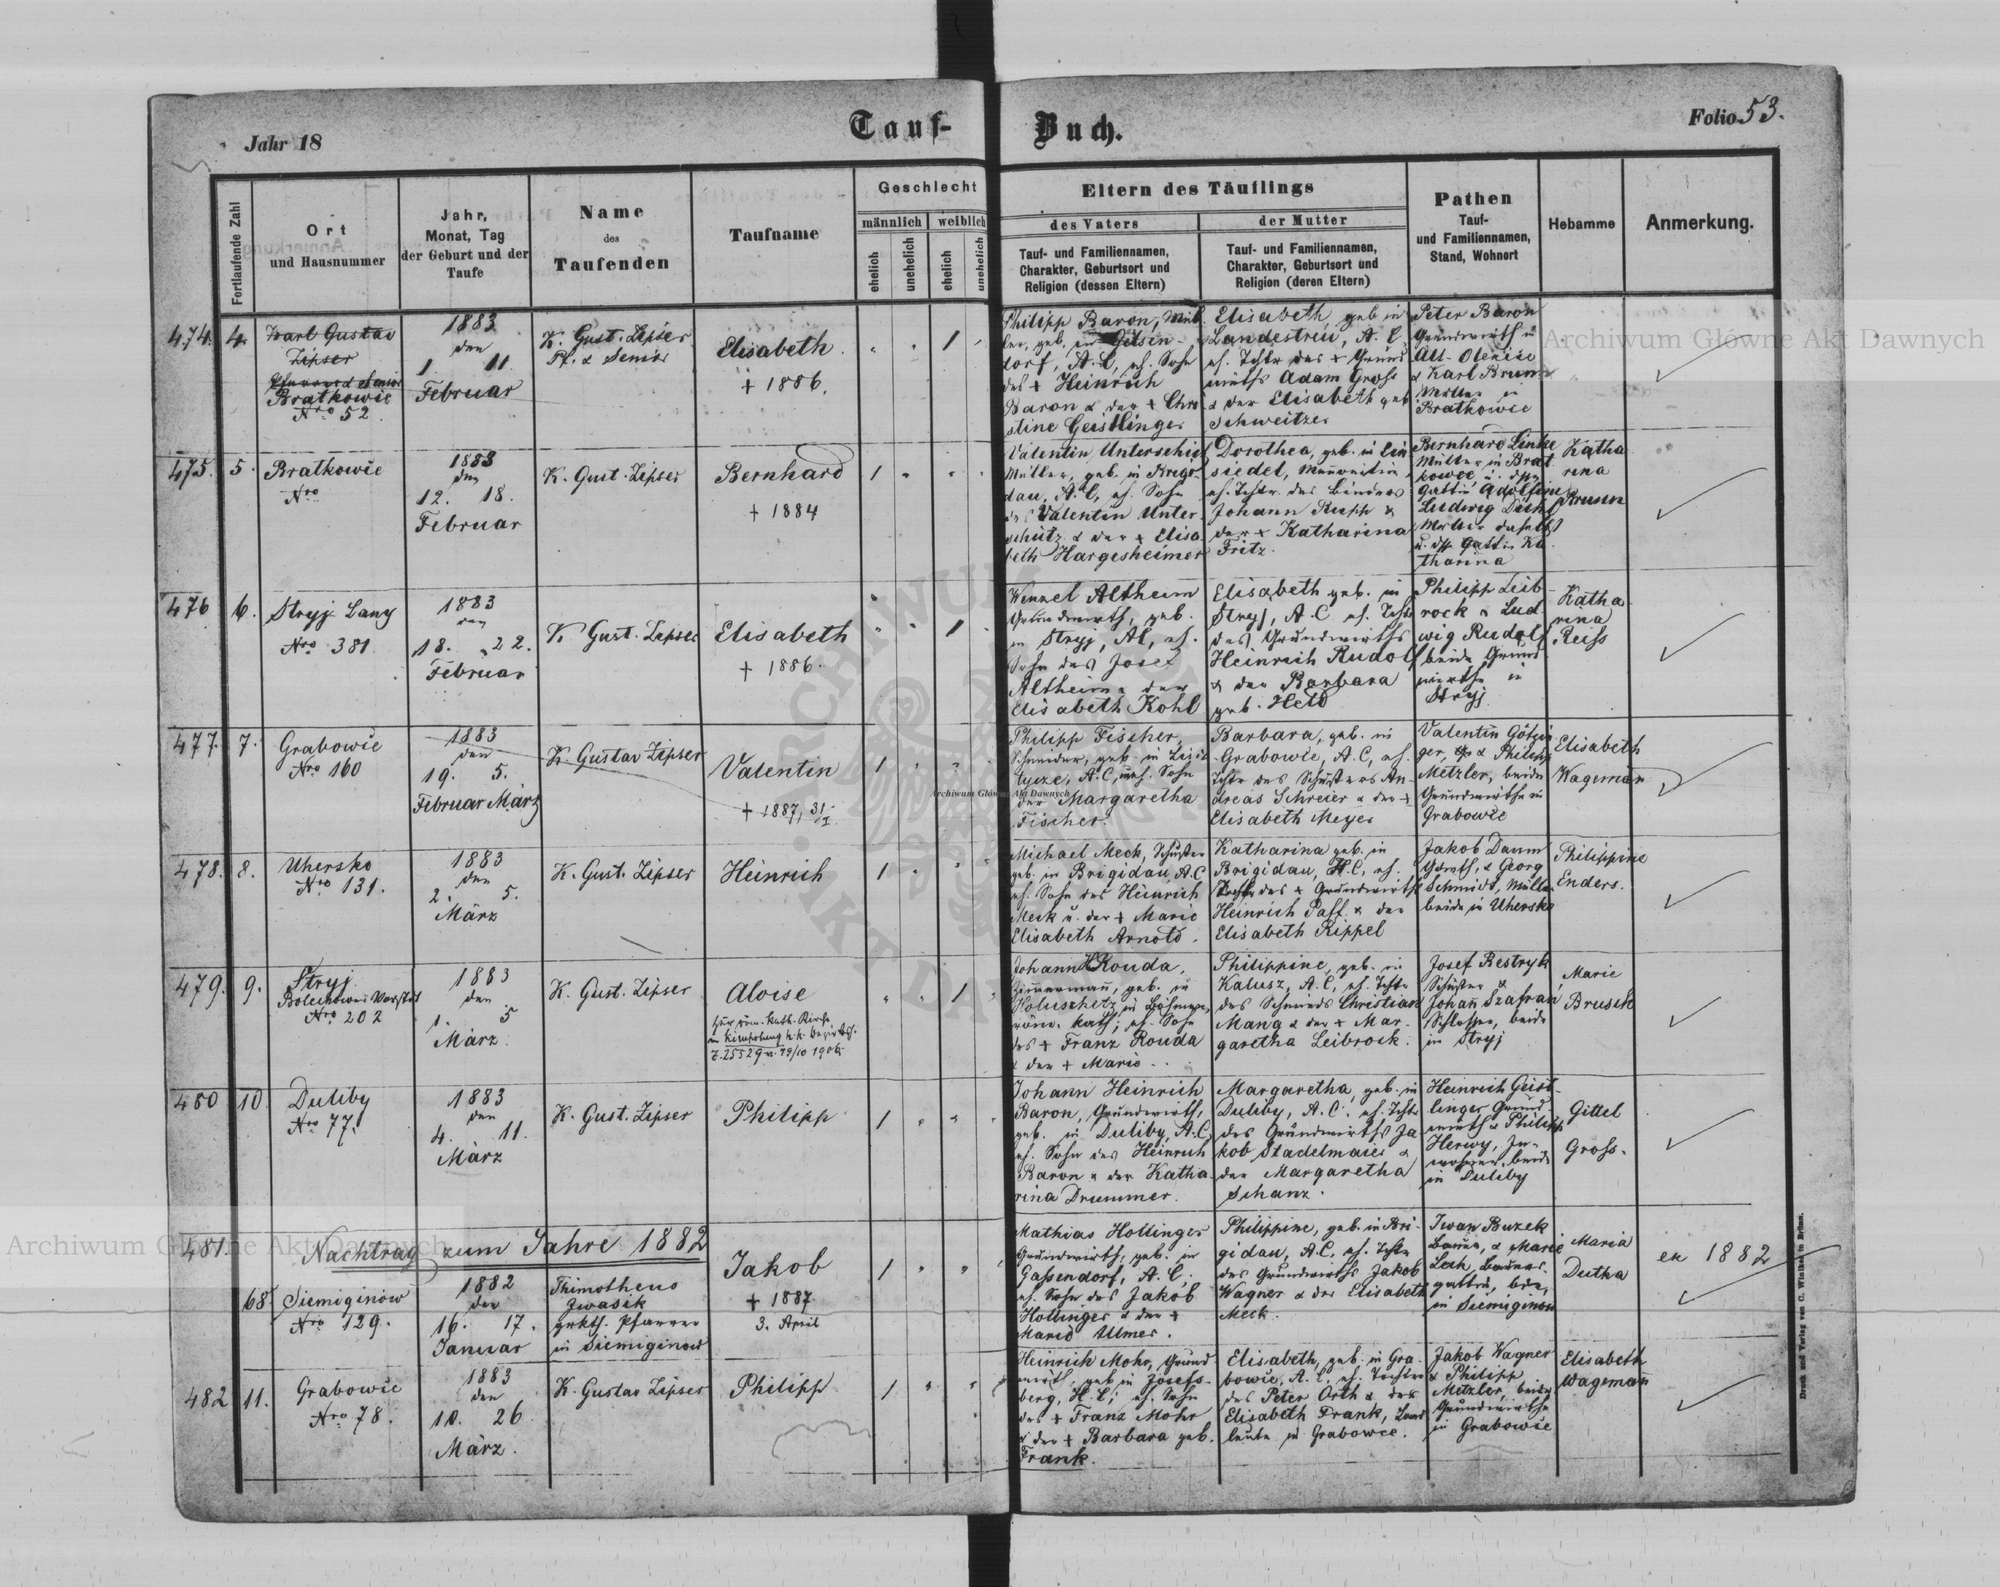 Jahr 18
Tauf-
Buch.
Folio 53.
Fortlaufende Zahl
Ort
und Hausnummer
Jahr,
Monat, Tag
der Geburt und der
Taufe
Name
des
Taufenden
Taufname
Geschlecht
männlich
weiblich
ehelich
unehelich
ehelich
unehelich
Eltern des Täuflings
des Vaters
Tauf- und Familiennamen,
Charakter, Geburtsort und
Religion (dessen Eltern)
der Mutter
Tauf- und Familiennamen,
Charakter, Geburtsort und
Religion (deren Eltern)
Pathen
Tauf-
und Familiennamen,
Stand, Wohnort
Hebamme
Anmerkung.
474. 4.
Karl Gustav
Zipser
Pfarrer & Senior
Bratkowie
Nro 52.
1883
den
1. 11.
Februar
K. Gust. Zipser
Pf. & Senior
Elisabeth
+ 1886.
1
Philipp Baron, Mül
ler, geb. in Gelsen-
dorf, A.C, eh. Sohn
des + Heinrich
Baron & der + Chri
stine Geistlinger
Elisabeth geb in
Landestreu, A. C.
eh. Tchtr des + Grund
wirths Adam Gross
& der Elisabeth geb
Schweitzer
Peter Baron
Grundwirth in
Alt-Olenice
& Karl Brunn
Müller in
Bratkowie
475. 5.
Bratkowie
Nro
1883
den
12. 18.
Februar
K. Gust. Zipser
Bernhard
+ 1884
1
Valentin Unterschütz
Müller, geb. in Brigi
dau, A.C, eh. Sohn
des Valentin Unter
schütz & der + Elisa
beth Hargesheimer
Dorothea, geb. in Ein
siedel, Mennonitin
eh. Tchtr. des Binders
Johann Rupp &
der + Katharina
Fritz.
Bernhard Linke
Müller in Brat
kowce, u. dssn
Gattin Adolfine
Ludwig
Müller daselbst
u. dss Gattin Ka
tharina
Katha
rina
Brunn
476 6.
Stryj Lany
Nro 381
1883
den
18. 22.
Februar
K. Gust. Zipser
Elisabeth
+ 1886.
1
Wenzel Altheim
Grundwirth, geb.
in Stryj, AC, eh.
Sohn des Josef
Altheim & der
Elisabeth Kohl
Elisabeth geb. in
Stryj, A.C eh. Tchtr
des Grundwirths
Heinrich Rudolf
& der Barbara
geb. Held
Philipp Leib
rock & Lud
wig Rudolf
beide Grund
wirthe in
Stryj
Katha
rina
Reiss
477. 7.
Grabowie
Nro 160
1883
den
19. 5.
Februar März
K. Gustav Zipser
Valentin
+ 1887, 31/I
1
Philipp Fischer,
Schneider, geb. in
A.C, uneh. Sohn
der Margaretha
Fischer.
Barbara, geb. in
Grabowie, A.C, eh.
Tchtr des Schusters An
dreas Schreier & der +
Elisabeth Meyer
Valentin
ger, & Philipp
Metzler, beide
Grundwirthe in
Grabowie
Elisabeth
Wageman
478. 8.
Uhersko
Nro 131.
1883
den
2. 5.
März
K. Gust. Zipser
Heinrich
1
Michael Meck, Schuster
geb. in Brigidau, A.C
eh. Sohn des Heinrich
Meck u. der + Marie
Elisabeth Arnold.
Katharina geb. in
Brigidau, H.C, eh.
Tochtr des + Grundwirth
Heinrich Paff & der
Elisabeth Rippel
Jakob Daum
Grwth, & Georg
Schmidt, Müller
beide in Uhersko
Philippine
Enders.
479. 9.
Stryj
Bolechower Vorstadt
Nro 202
1883
den
1. 5
März.
K. Gust. Zipser
Aloise
zur röm. kath. Kirche
Z. 25529 v. 19/10 1906
1
Johann Rouda,
Zimmermann, geb. in
Holuschetz in Böhmen,
röm. kath; eh. Sohn
des + Franz Rouda
& der + Marie
Philippine, geb. in
Kalusz, A.C, eh. Tchtr
des Schmieds Christian
Mang & der + Mar-
garetha Leibrock.
Josef Bestryk
Schuster &
Johann Szafran
Schlosser, beide
in Stryj
Marie
Brusek
480 10.
Duliby
Nro 77.
1883
den
4. 11.
März
K. Gust. Zipser
Philipp
1
Johann Heinrich
Baron, Grundwirth,
geb. in Duliby, A.C,
eh. Sohn des Heinrich
Baron & der Katha
rina Drummer.
Margaretha, geb. in
Duliby, A.C. eh. Tchtr
des Grundwirths Ja
kob Stadelmaier &
der Margaretha
Schanz.
Heinrich Geist-
linger Grund-
wirth & Philipp
Herwy, In-
wohner, beide
in Duliby
Gittel
Gross.
481.
Nachtrag zum Jahre 1882
68.
Siemiginow
Nro 129.
1882
den
16. 17.
Januar
Thimotheus
Jwasik
grkth. Pfarrer
in Siemiginow
Jakob
+ 1887
3. April
1
Mathias Hollinger
Grundwirth, geb. in
Gassendorf, A.C.
eh. Sohn des Jakob
Hollinger & der +
Marie Ulmer.
Philippine, geb. in Bri-
gidau, A.C, eh. Tchtr
des Grundwirths Jakob
Wagner & der Elisabeth
Meck.
Iwan Buzek
Bauer, & Marie
Lech Bauers-
gattin, beide
in Siemiginow
Maria
Dutka
ex 1882
482 11.
Grabowie
Nro 78.
1883
den
10. 26.
März.
K. Gustav Zipser
Philipp
1
Heinrich Mohr, Grund
wirth, geb. in Josefs-
berg, H.C; eh. Sohn
des + Franz Mohr
& der + Barbara geb.
Frank.
Elisabeth, geb. in Gra-
bowie, A.C, eh. Tochter
des Peter Orth & der
Elisabeth Frank, Land
leute in Grabowce.
Jakob Wagner
& Philipp
Metzler, beide
Grundwirthe
in Grabowie
Elisabeth
Wageman
Druck und Verlag von C. Winiker in Brünn.
Archiwum Główne Akt Dawnych
Archiwum Główne Akt Dawnych
Archiwum Główne Akt Dawnych